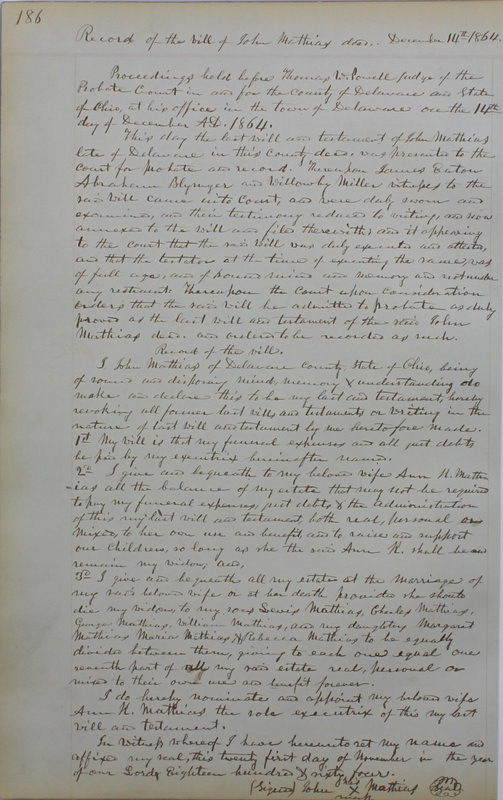 186
Record of the Will of John Mathias decd. December 14th 1864.
Proceedings held before Thomas W. Powell Judge of the
Probate Court in and for the County of Delaware and State
of Ohio, at his office in the town of Delaware on the 14th
day of December A.D. 1864.
This day the last will and testament of John Mathias
late of Delaware in this County decd. was presented to the
Court for probate and record. Thereupon James Eaton
Abraham Blymyer and Willoughby Miller witnesses to the
said Will came into Court, and were duly sworn and
examined, and their testimony reduced to writing, and now
annexed to the will and filed therewith; and it appearing
to the court that the said Will was duly executed and attested,
and that the testator at the time of executing the same, was
of full age, and of sound mind and memory and not under
any restraint. Thereupon the Court upon consideration
orders that the said will be admitted to probate as duly
proved as the last will and testament of the said John
Mathias decd. and ordered to be recorded as such.
Record of the will.
I John Mathias of Delaware County, State of Ohio, being
of sound and disposing mind, memory & understanding do
make and declare this to be my last and testament, hereby
revoking all former last wills and testaments or writing in the
nature of last will and testament by me heretofore made.
1st My will is that my funeral expenses and all just debts
be paid by my executrix hereinafter named.
2d I give and bequeath to my beloved wife Ann H. Mathi
=ias all the balance of my estate that may not be required
to pay my funeral expenses, just debts & the administration
of this my last will and testament both real, personal or
mixed, to her own use and benefit, and to raise and support
our children, so long as she the said Ann H. shall be and
remain my widow; and,
3d I give and bequeath all my estate at the marriage of
my said beloved wife or at her death provided she should
die my widow, to my sons Lewis Mathias, Charles Mathias,
George Mathias, William Mathias, and my daughters Margaret
Mathias Maria Mathias, & Rebecca Mathias to be equally
divided between them, giving to each one equal one
seventh part of all my said estate real, personal or
mixed to their own use and benefit forever.
I do hereby nominate and appoint my beloved wife
Ann H. Mathias the sole executrix of this my last
will and testament.
In Witness whereof I have hereunto set my name and
affixed my seal, this twenty first day of November in the year
of our Lord, Eighteen hundred & sixty four.
his
(Signed) John X Mathias
mark